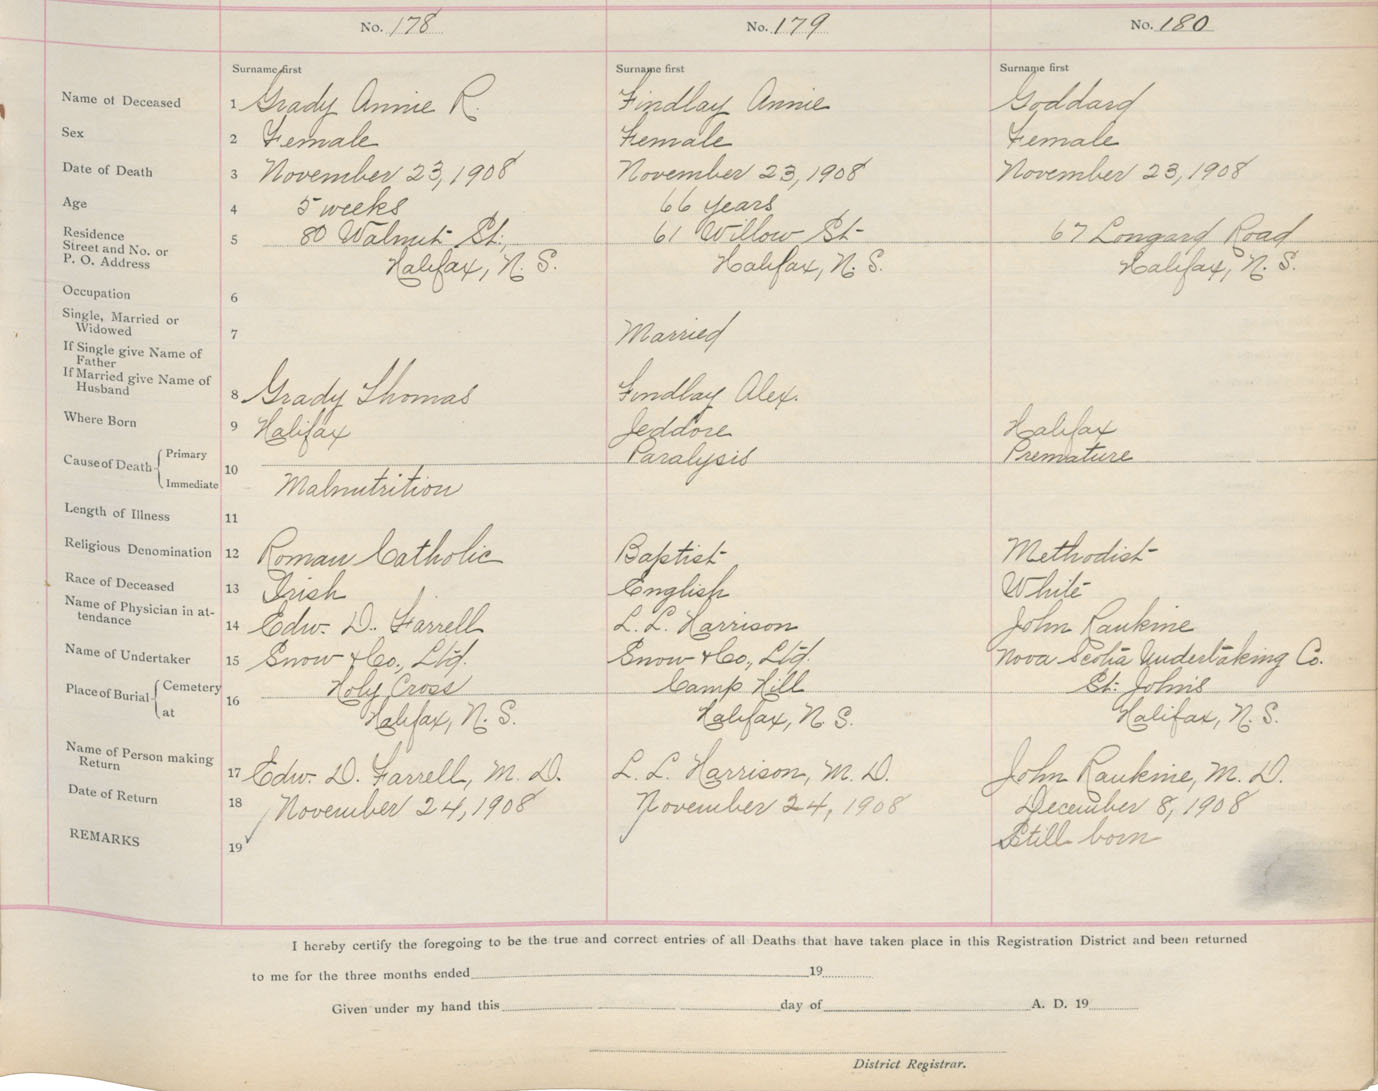 No. 178 No. 179 No. 180
Surname first Surname first Surname first
Name of Deceased 1 Grady Annie R. Findlay Annie Goddard
Sex 2 Female Female Female
Date of Death 3 November 23, 1908 November 23, 1908 November 23, 1908
Age 4 5 weeks 66 years
Residence
Street and No. or 5 80 Walnut St., 61 Willow St 67 Longard Road
P. O. Address Halifax, N. S. Halifax, N. S. Halifax, N. S.
Occupation 6
Single, Married or
Widowed 7 Married
If Single give Name of
Father
If Married give Name of
Husband 8 Grady Thomas Findlay Alex.
Where Born 9 Halifax Jeddore Halifax
Cause of Death Primary 10 Paralysis Premature
Immediate Malnutrition
Length of Illness 11
Religious Denomination 12 Roman Catholic Baptist Methodist
Race of Deceased 13 Irish English White
Name of Physician in at-
tendance 14 Edw. D. Farrell L. L. Harrison John Rankine
Name of Undertaker 15 Snow & Co., Ltd. Snow & Co., Ltd. Nova Scotia Undertaking Co.
Place of Burial Cemetery 16 Holy Cross Camp Hill St. John's
at Halifax, N. S. Halifax, N. S. Halifax, N. S.
Name of Person making
Return 17 Edw. D. Farrell, M. D. L. L. Harrison, M. D. John Rankine, M. D.
Date of Return 18 November 24, 1908 November 24, 1908 December 8, 1908
REMARKS 19 Still born
I hereby certify the foregoing to be the true and correct entries of all Deaths that have taken place in this Registration District and been returned
to me for the three months ended 19
Given under my hand this day of A. D. 19
District Registrar.